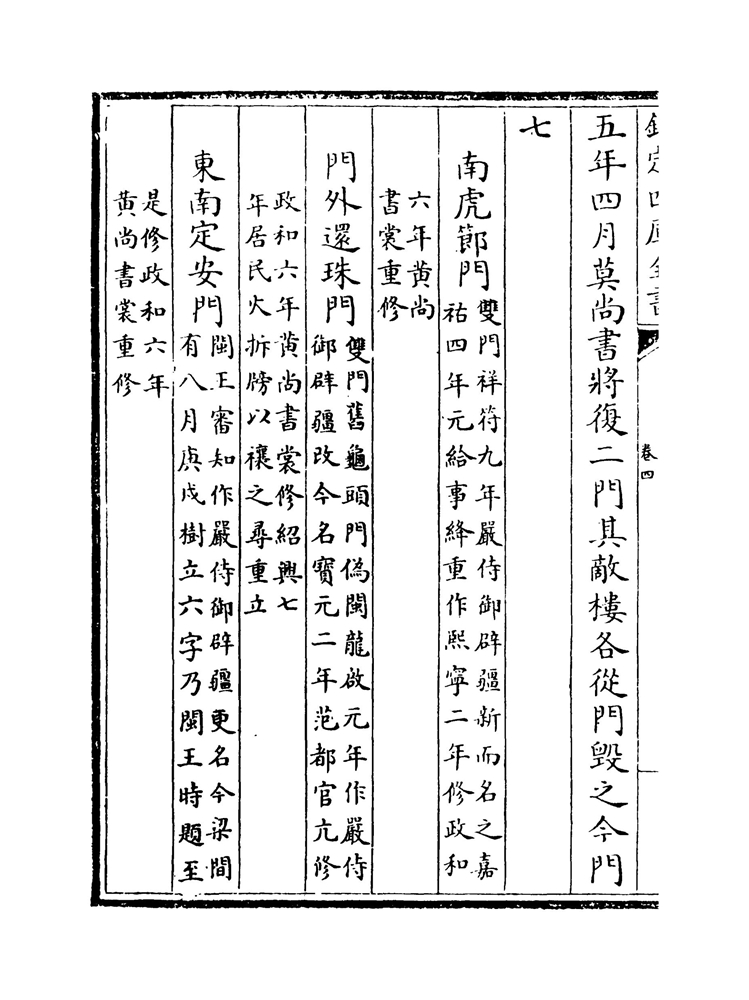 欽定四庫全書
卷四
五年四月莫尚書將復二門其敵樓各從門毀之今門
七
南虎節門
雙門祥符九年嚴侍御辟疆新而名之嘉
祐四年元給事絳重作熙寧二年修政和
六年黃尚
書裳重修
門外還珠門
雙門舊龜頭門偽閩龍啟元年作嚴侍
御辟疆改今名寶元二年范都官亢修
政和六年黃尚書裳修紹興七
年居民火拆牓以禳之尋重立
東南定安門
閩王審知作嚴侍御辟疆更名今梁間
有八月庚戍樹立六字乃閩王時題至
是修政和六年
黃尚書裳重修